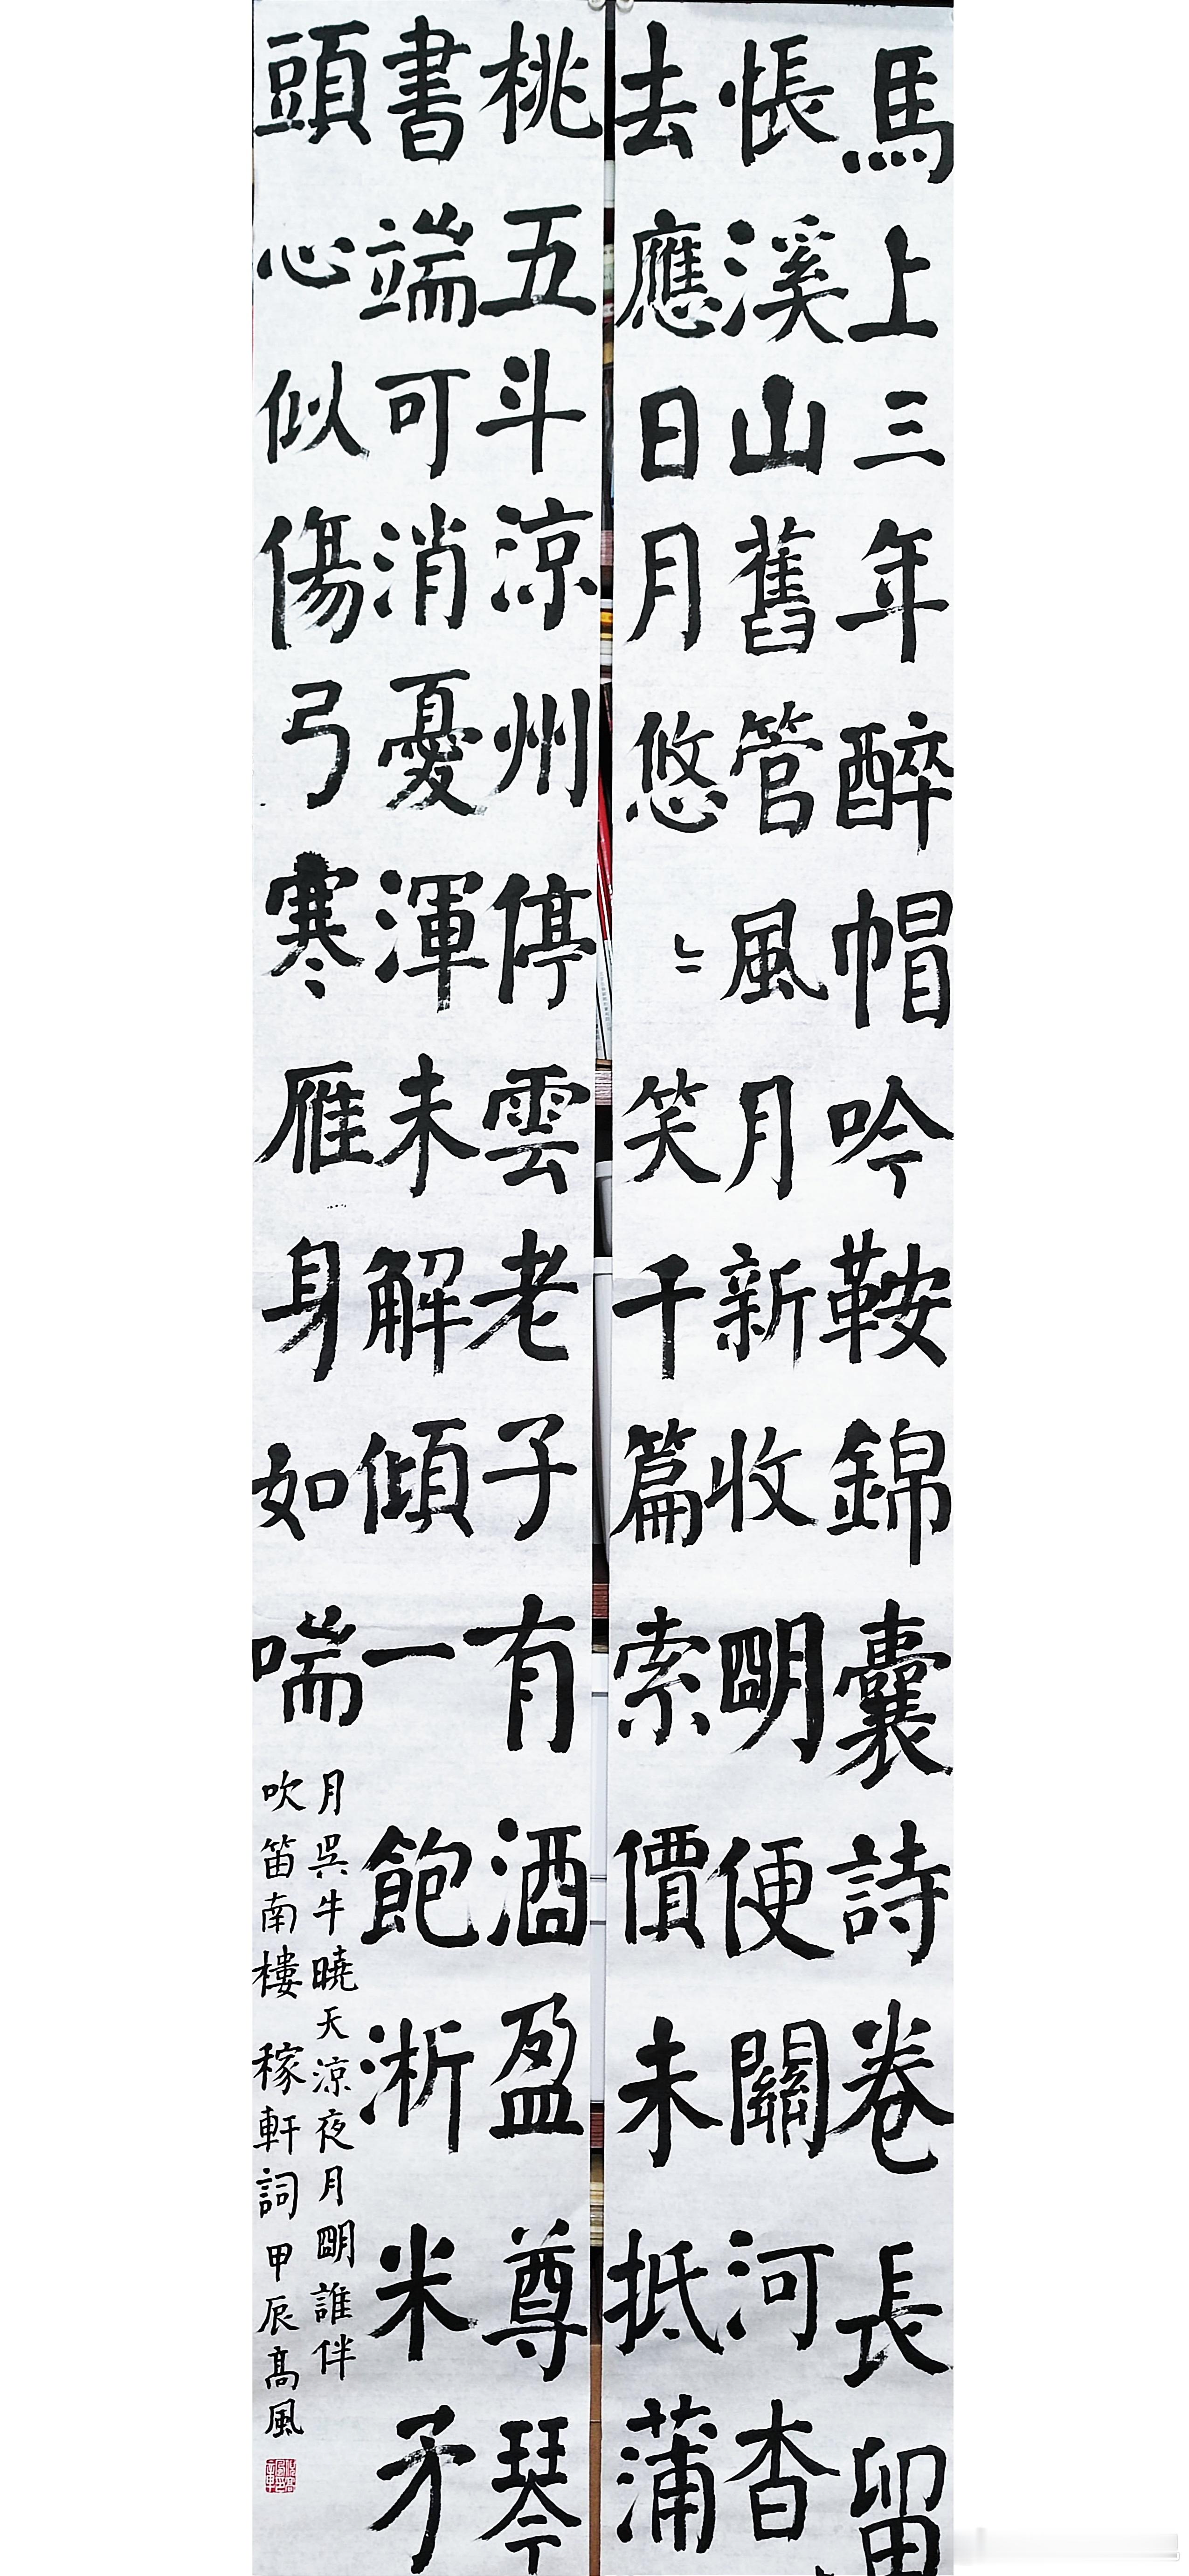 馬上三年醉帽吟鞍錦囊詩卷長留
悵溪山舊管風月新收明便關河杳
去應日月悠〻笑千篇索價未抵蒲
桃五斗涼州停雲老子有酒盈尊琴
書端可消憂渾未解傾一飽淅米矛
頭心似傷弓寒雁身如喘
月吳牛曉天涼夜月明誰伴
吹笛南樓 稼軒詞 甲辰高風